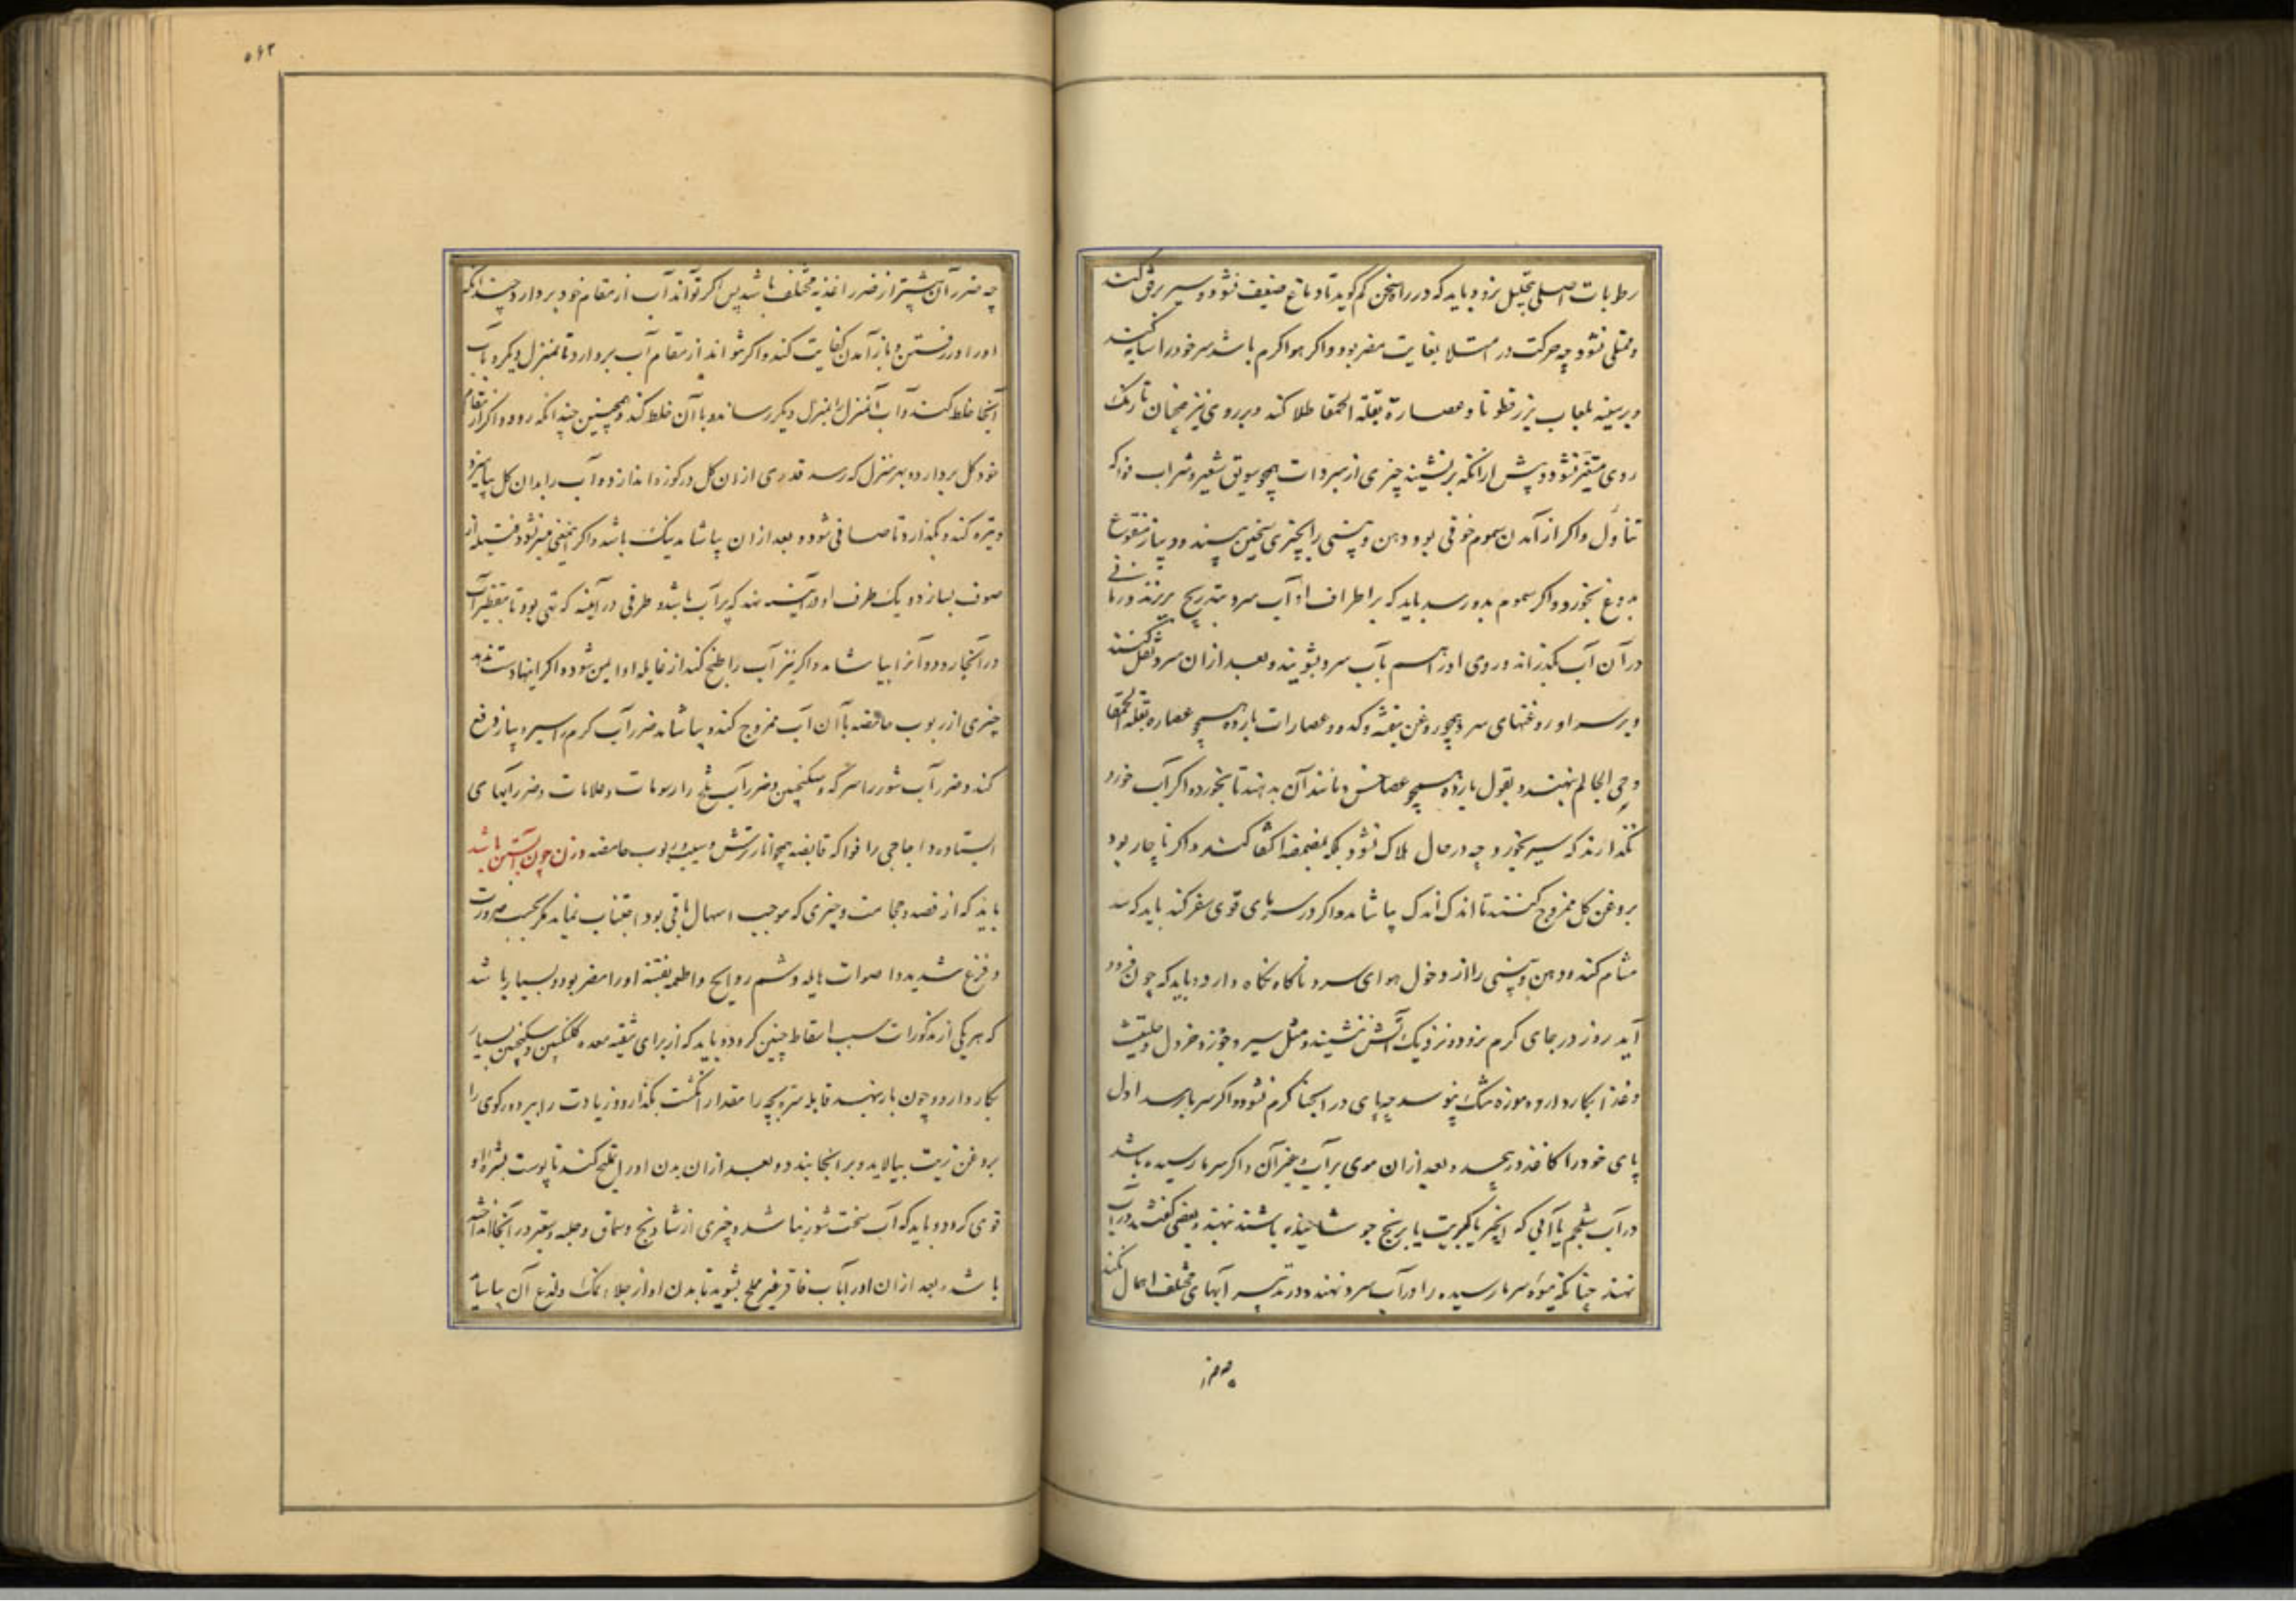 رطوبات اصلی بتحلیل نرود و باید که در راه سخن کم گوید تا دماغ ضعیف نشود و سیر برفق کند
و ممتلی نشود چه حرکت در امتلا بغایت مضر بود و اگر هوا گرم باشد سر خود را سایه کند
و بر سینه بلعاب بزرقطونا و عصارة بقلة الحمقا طلا کند و بر روی نیز همچنان تا رنک
روی متغیر نشود و پیش از آنکه برنشیند چیزی از مبردات همچو سویق شعیر و شراب فواکه
تناول و اگر از آمدن سموم خوفی بود دهن و بینی را بچیزی سخین ببندد و پیاز منقوع
بدوغ بخورد و اگر سموم بدو رسد باید که بر اطراف او آب سرد بتدریج بریزند و زمانی
در آن آب بگذراند و روی او را هم بآب سرد بشویند و بعد از آن سرد نقل کنند
و بر سر او روغنهای سرد همچو روغن بنفشه و کدو و عصارات بارده همچو عصاره بقلة الحمقا
و حی العالم نهند و بقول بارده همچو خس و مانند آن بدهند تا بخورد و اگر آب خورد
نگذارند که سیر بخورد چه در حال هلاک شود بلکه بمضمضه اکتفا کنند و اگر ناچار بود
بروغن کل ممزوج کنند تا اندک اندک بیاشامد و اگر در سرمای قوی سفر کند باید که سد
مشام کند و دهن و بینی را از دخول هوای سرد ناگاه نگاه دارد و باید که چون فرود
آید روز در جای گرم نرود و نزدیک آتش ننشیند و مثل سیر و جوز و خردل و حلتیت
و غذا بکار دارد و موزه تنک نپوشد چه پای در آنجا گرم نشود و اگر سرما رسد اول
پای خود را کاغذ در پیچد و بعد از آن موی بز یا غیر آن و اگر سرما رسیده باشد
در آب شلجم یا آبی که انجیر یا کبریت یا برنج جوشانیده باشند نهند و بعضی گفتند در آب
نهند چنانکه میوه سرما رسیده را در آب سرد نهند و در تدبیر آبهای مختلف اهمال نکند
چه ضرر
۵۶۲
چه ضرر آن بیشتر از ضرر اغذیه مختلف باشد پس اگر تواند آب از مقام خود بردارد چندانکه
او را در رفتن و باز آمدن کفایت کند و اگر نتواند از مقام آب بردارد تا بمنزل دیگر و بآب
آنجا خلط کند و آب آن منزل را بمنزل دیگر رساند و با آن خلط کند و همچنین چندانکه رود و اگر از مقام
خود کل بردارد و بهر منزل که رسد قدری از آن کل در کوزه اندازد و آب را بدان کل بیامیزد
و تیره کند و بگذارد تا صافی شود و بعد از آن بیاشامد نیک باشد و اگر این معنی میسر نشود فتیله از
صوف بسازد و یک طرف او در آنیه نهد که پر آب باشد و طرفی در آنیه که تهی بود تا بتقطیر آب
در آنجا رود و آنرا بیاشامد و اگر نیز آب را طبخ کند از غایله او ایمن شود و اگر اینها دست ندهد
چیزی از ربوب حامضه با آن آب ممزوج کند و بیاشامد ضرر آب گرم را سیر و پیاز دفع
کند و ضرر آب شور را سرکه و سکنجبین و ضرر آب تلخ را دسومات و حلاوات و ضرر آبهای
ایستاده و اجاجی را فواکه قابضه همچو انار ترش و سیب و ربوب حامضه و زن چون آبستن باشد
باید که از فصد و حجامت و چیزی که موجب اسهال یا قی بود اجتناب نماید مگر بحسب ضرورت
و فزع شدید و اصوات هایله و شم روایح و اطعمه بغتة او را مضر بود و بسیار باشد
که هر یکی از مذکورات سبب اسقاط جنین گردد و باید که از برای تنقیه معده گلنگبین و سکنجبین بسیار
بکار دارد و چون بار نهد قابله سره بچه را مقدار انگشت بگذارد و زیادت را ببرد و رکوی را
بروغن زیت بیالاید و بر آنجا بندد و بعد از آن بدن او را تملیح کند تا پوست بشره او
قوی گردد و باید که آب سخت شور نباشد و چیزی از شادنج و سماق و حلبه و سعتر در آنجا انداخته
باشد و بعد از آن او را بآب فاتر غیر ملح بشوید تا بدن او از جلاء نمک و لذع آن بیاساید